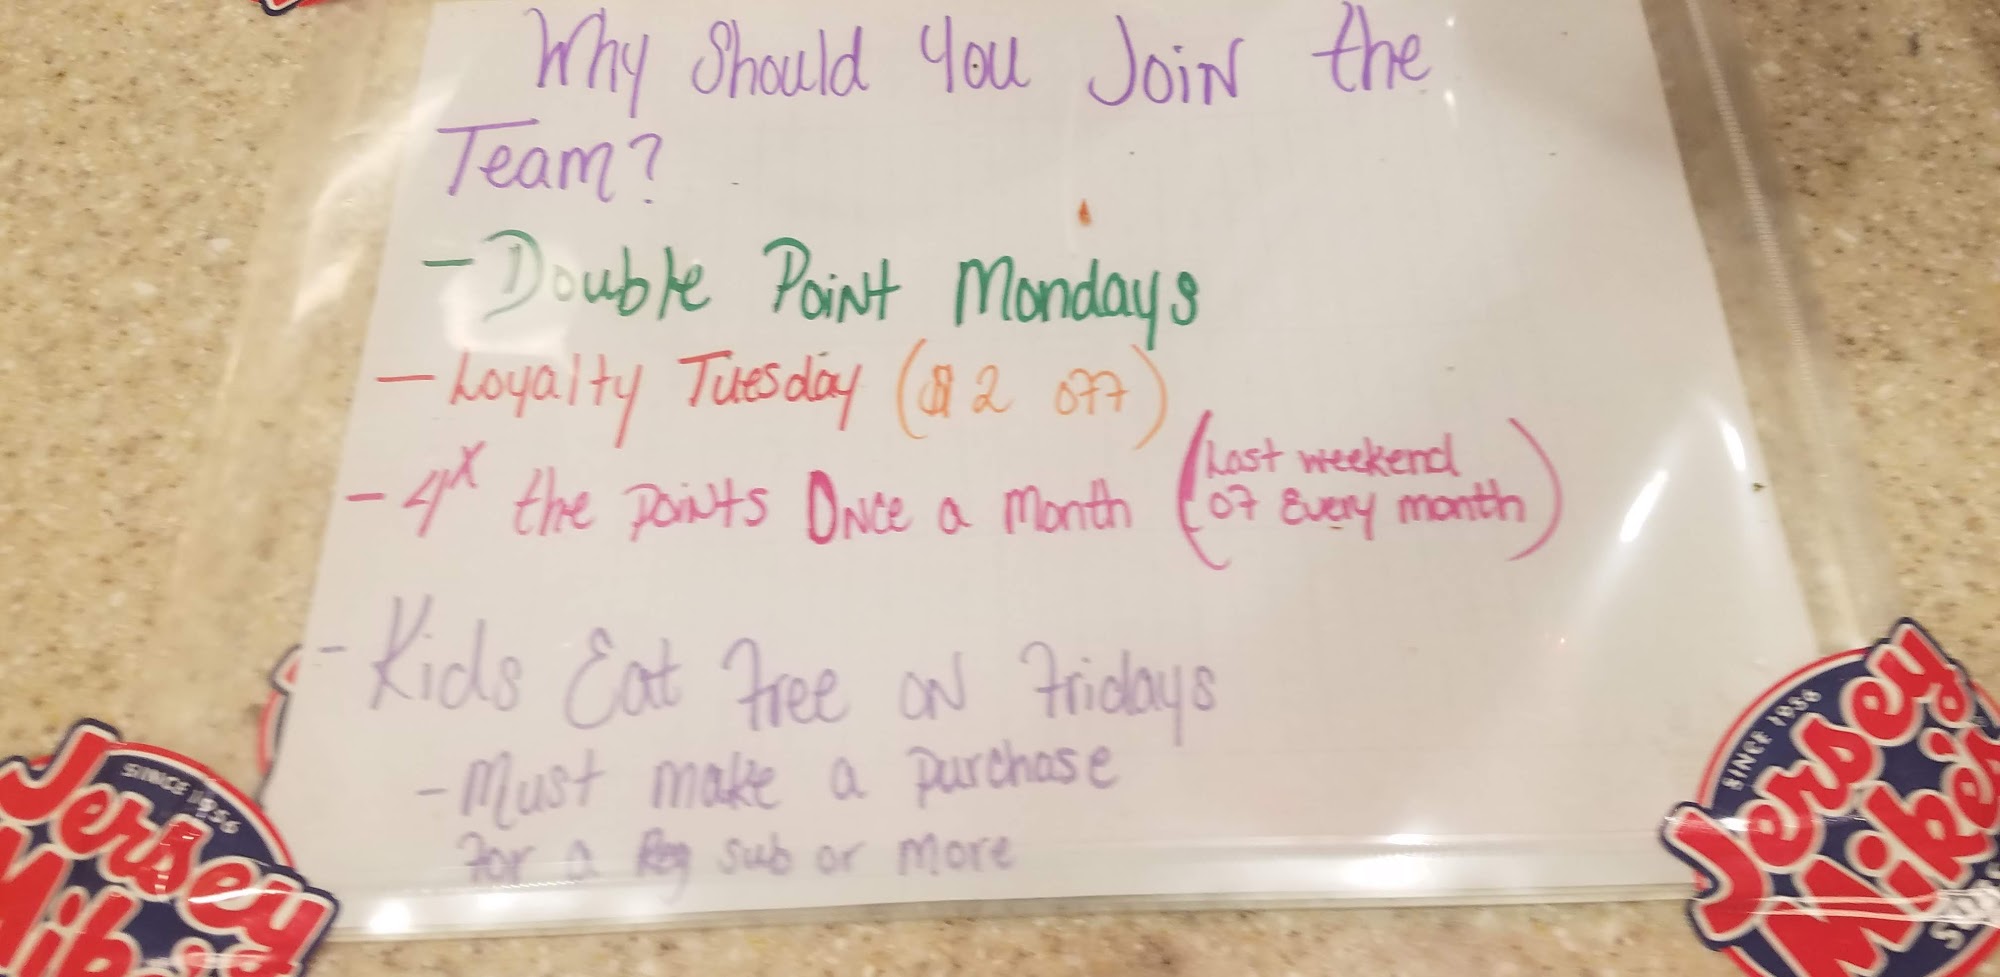 Why Should You Join the
Team?
- Double Point Mondays
- Loyalty Tuesday ($2 off)
- 4x the points Once a month (Last weekend
of Every month)
- Kids Eat free on Fridays
- Must make a purchase
for a Reg sub or more
SINCE 1956
Jersey
Mike's
SINCE 1956
Jersey
Mike's